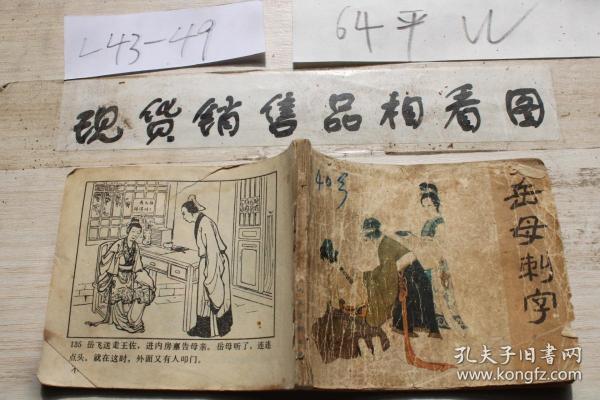 L43-49
64平 W
现货销售品相看图
40号
岳母刺字
135 岳飞送走王佐，进内房禀告母亲。岳母听了，连连
点头。就在这时，外面又有人叩门。
孔夫子旧书网
www.kongfz.com